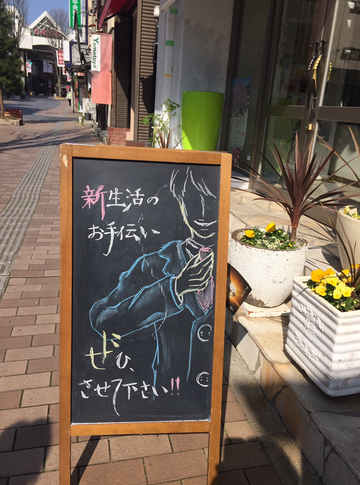 新生活の
お手伝い
ぜひ、
させて下さい!!